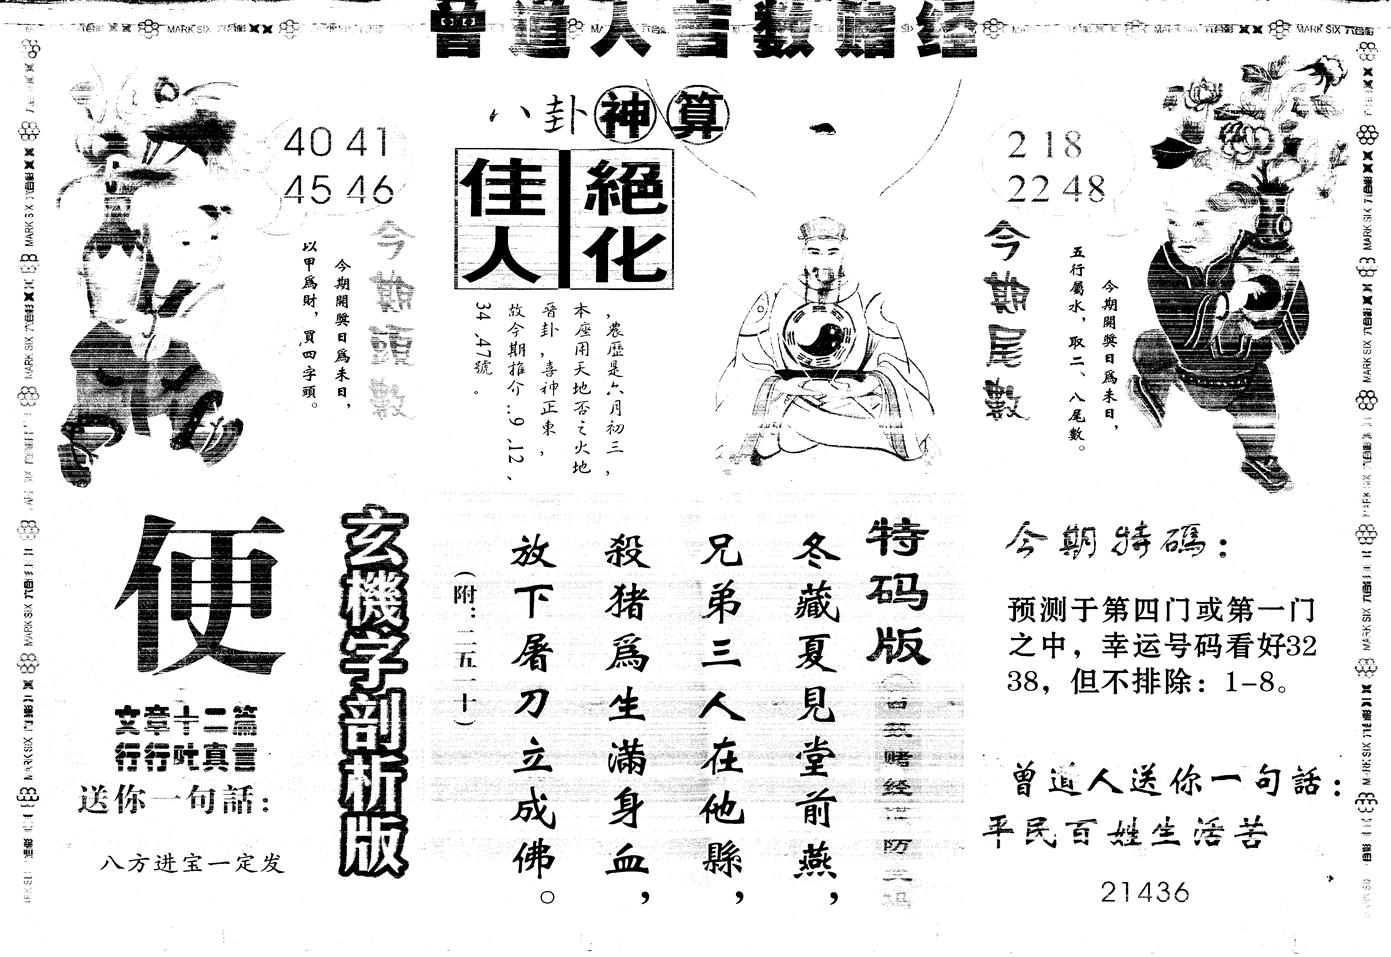 曾道人言數赌经
MARK SIX 六合彩
八卦神算
佳人
絕化
40 41
45 46
今期頭數
今期開獎日爲未日，
以甲爲財，買四字頭。
，農歷是六月初三，
本座用天地否之火地
晉卦，喜神正東，
故今期推介：9 .12 、
34 .47號。
2 18
22 48
今期尾數
今期開獎日爲未日，
五行屬水，取二、八尾數。
便
文章十二篇
行行吐真言
送你一句話：
八方进宝一定发
玄機字剖析版
特码版
冬藏夏見堂前燕，
兄弟三人在他縣，
殺猪爲生滿身血，
放下屠刀立成佛。
（附：二五一十）
今期特碼：
预测于第四门或第一门
之中，幸运号码看好32
38，但不排除：1-8。
曾道人送你一句話：
平民百姓生活苦
21436